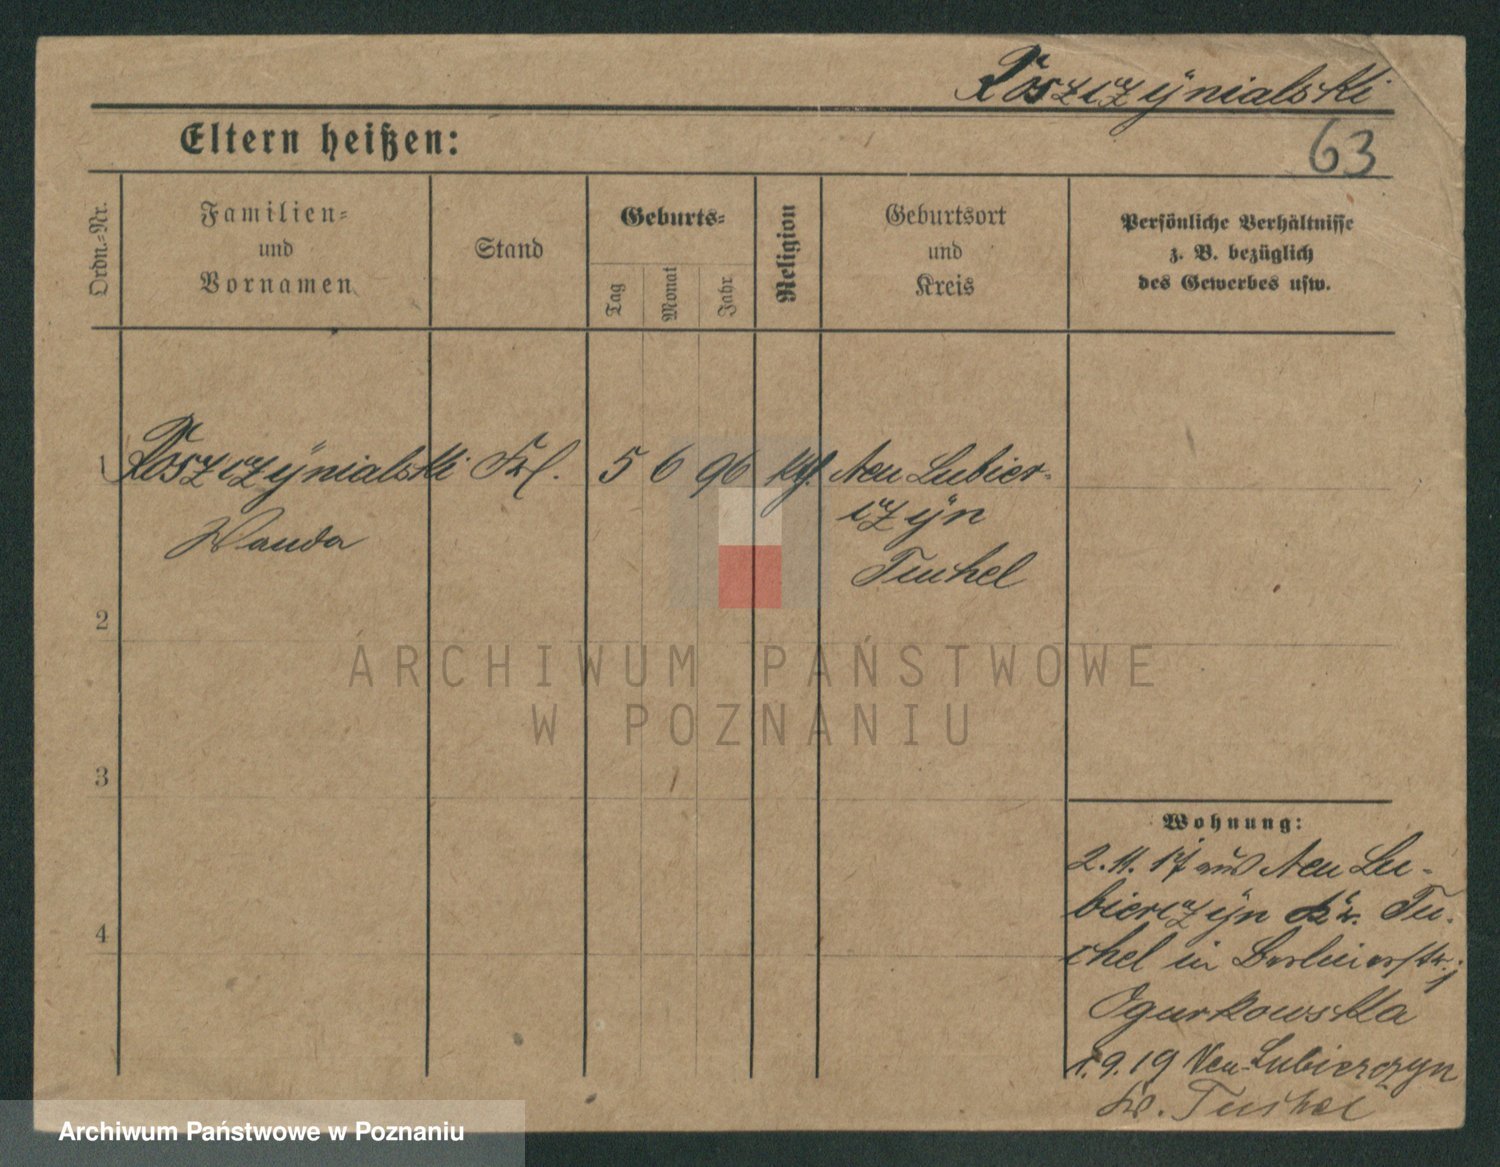 Roszczÿnialski
Eltern heißen:
63
Ordn.=Nr.
Familien=
und
Vornamen
Stand
Geburts=
Tag
Monat
Jahr
Religion
Geburtsort
und
Kreis
Persönliche Verhältnisse
z. B. bezüglich
des Gewerbes usw.
1 Roszczÿnialski Frl. 5 6 96 kth. Neu Lubier-
czÿn
Wanda
Tuchel
2
3
4
Wohnung:
2.11.17 aus Neu Lu-
bierczÿn Kr. Tu-
chel in Berlinerstr. 1
Ogurkowska
1.9.19 Neu-Lubierczyn
Kr. Tuchel
ARCHIWUM PAŃSTWOWE
W POZNANIU
Archiwum Państwowe w Poznaniu